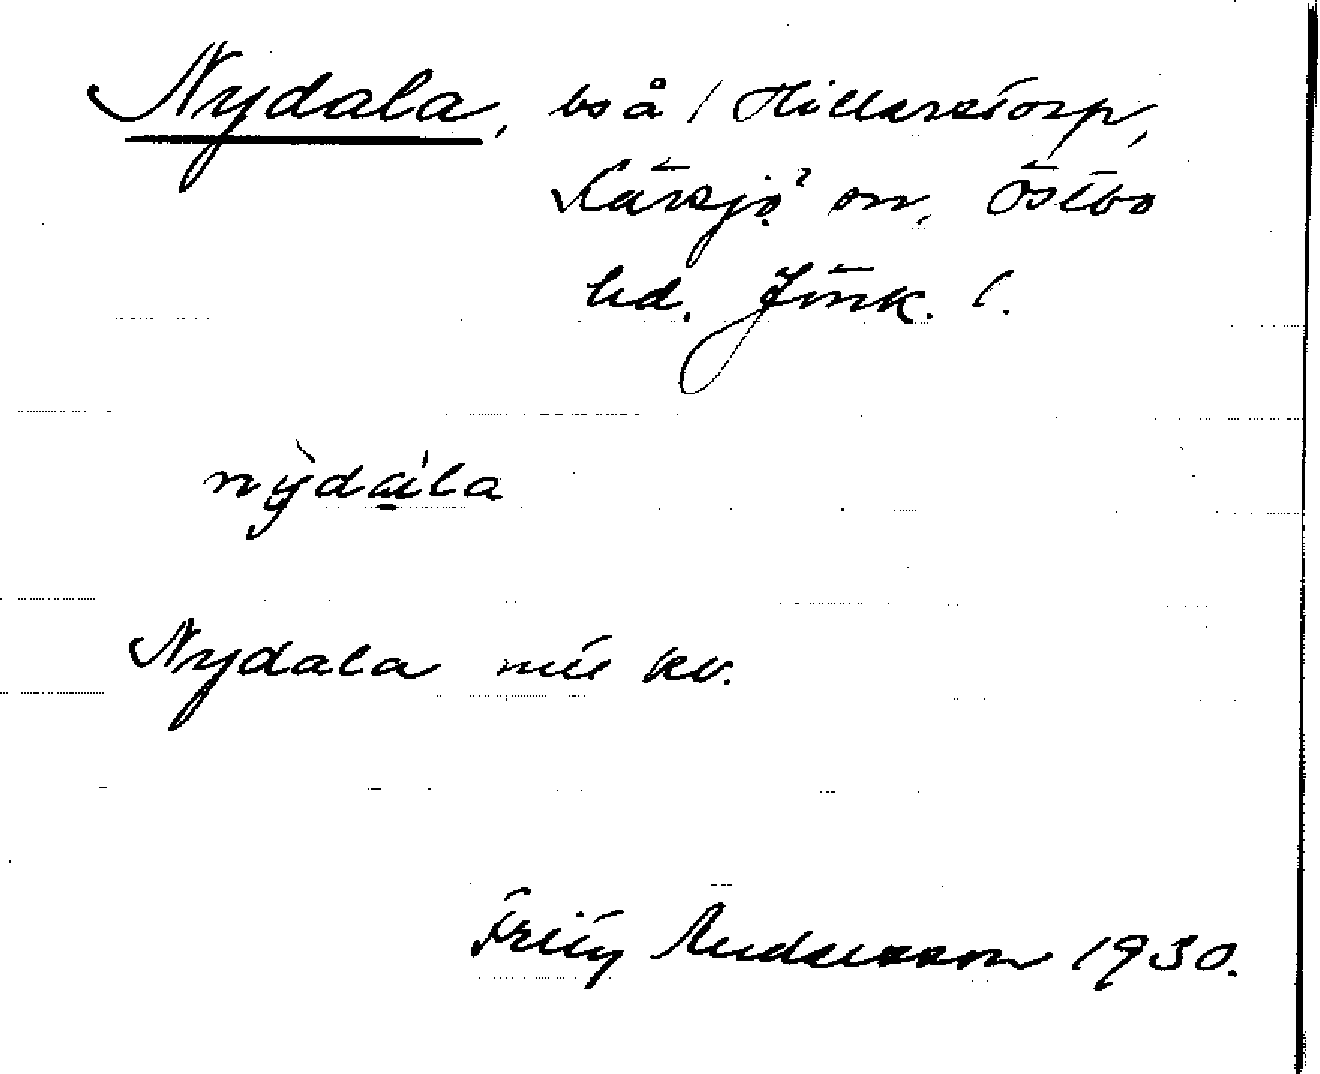 Nydala, bs å / Hillerstorp,
Kärsjö sn, Östbo
hd. Jönk. l.
nỳda̱ꞌla
Nydala mıe kv.
Fritz Andersson 1930.